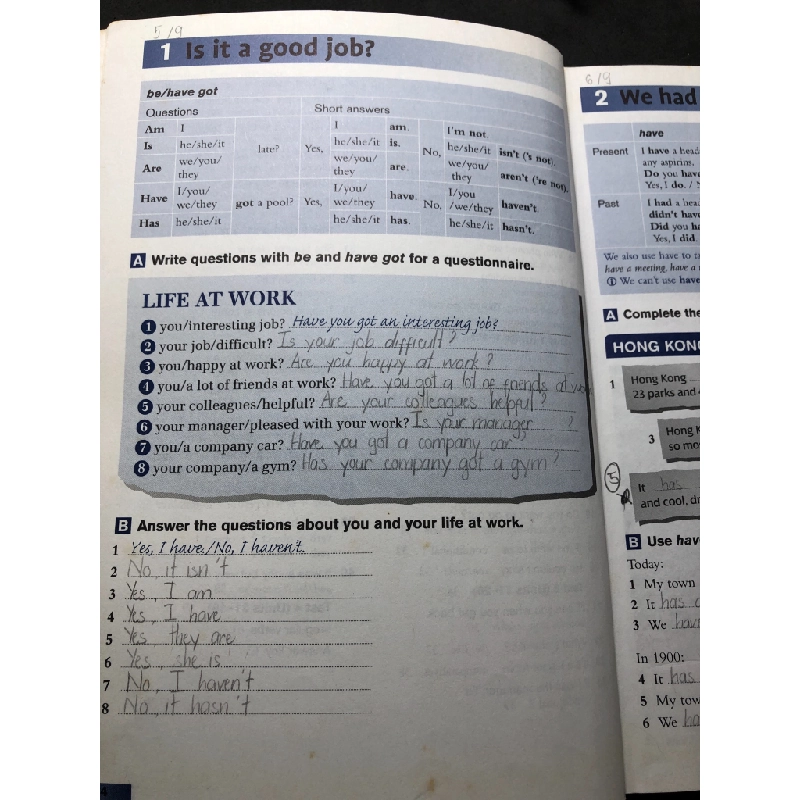 5/9
1 Is it a good job?
be/have got
Questions Short answers
Am I I am. I'm not.
Is he/she/it late? Yes, he/she/it is. No, he/she/it isn't ('s not).
Are we/you/they we/you/they are. we/you/they aren't ('re not).
Have I/you/we/they got a pool? Yes, I/you/we/they have. No, I/you/we/they haven't.
Has he/she/it he/she/it has. he/she/it hasn't.
A Write questions with be and have got for a questionnaire.
LIFE AT WORK
1 you/interesting job? Have you got an interesting job?
2 your job/difficult? Is your job difficult?
3 you/happy at work? Are you happy at work?
4 you/a lot of friends at work? Have you got a lot of friends at work
5 your colleagues/helpful? Are your colleagues helpful?
6 your manager/pleased with your work? Is your manager ?
7 you/a company car? Have you got a company car?
8 your company/a gym? Has your company got a gym?
B Answer the questions about you and your life at work.
1 Yes, I have./No, I haven't.
2 No, it isn't
3 Yes, I am
4 Yes, I have
5 Yes they are
6 Yes, she is
7 No, I haven't
8 No, it hasn't
4
6/9
2 We had
have
Present I have a head
any aspirin.
Do you hav
Yes, I do. /
Past I had a hea
didn't hav
Did you ha
Yes, I did.
We also use have to t
have a meeting, have a
We can't use have
A Complete the
HONG KONG
1 Hong Kong
23 parks and
3 Hong K
so mo
5
It has
and cool, dr
B Use hav
Today:
1 My town
2 It has
3 We hav
In 1900:
4 It has
5 My tow
6 We ha